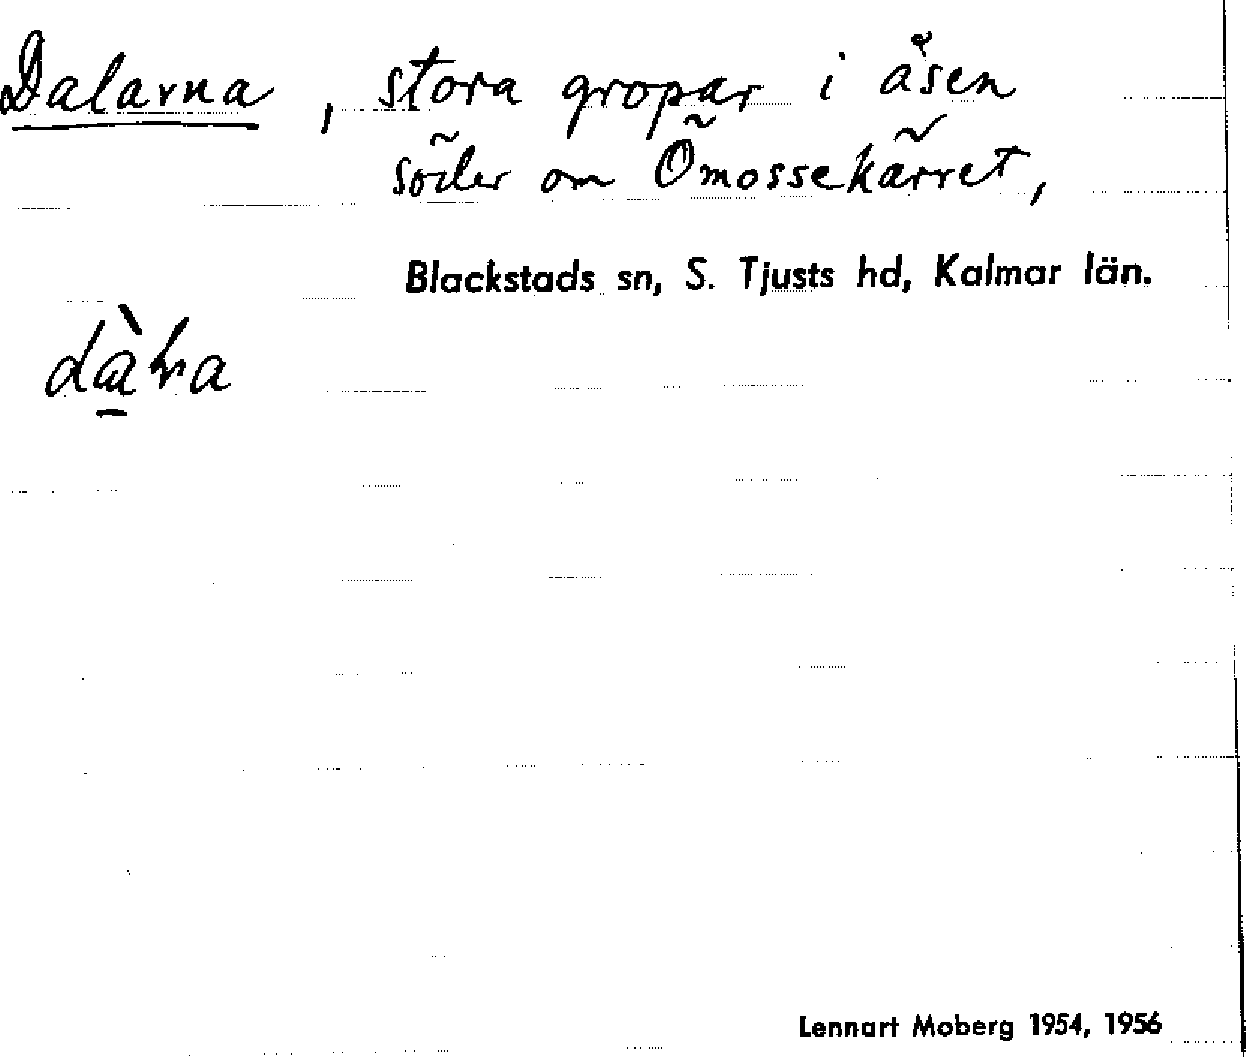 Dalarna, stora gropar i åsen
söder om Ömossekärret,
Blackstads sn, S. Tjusts hd, Kalmar län.
Lennart Moberg 1954, 1956